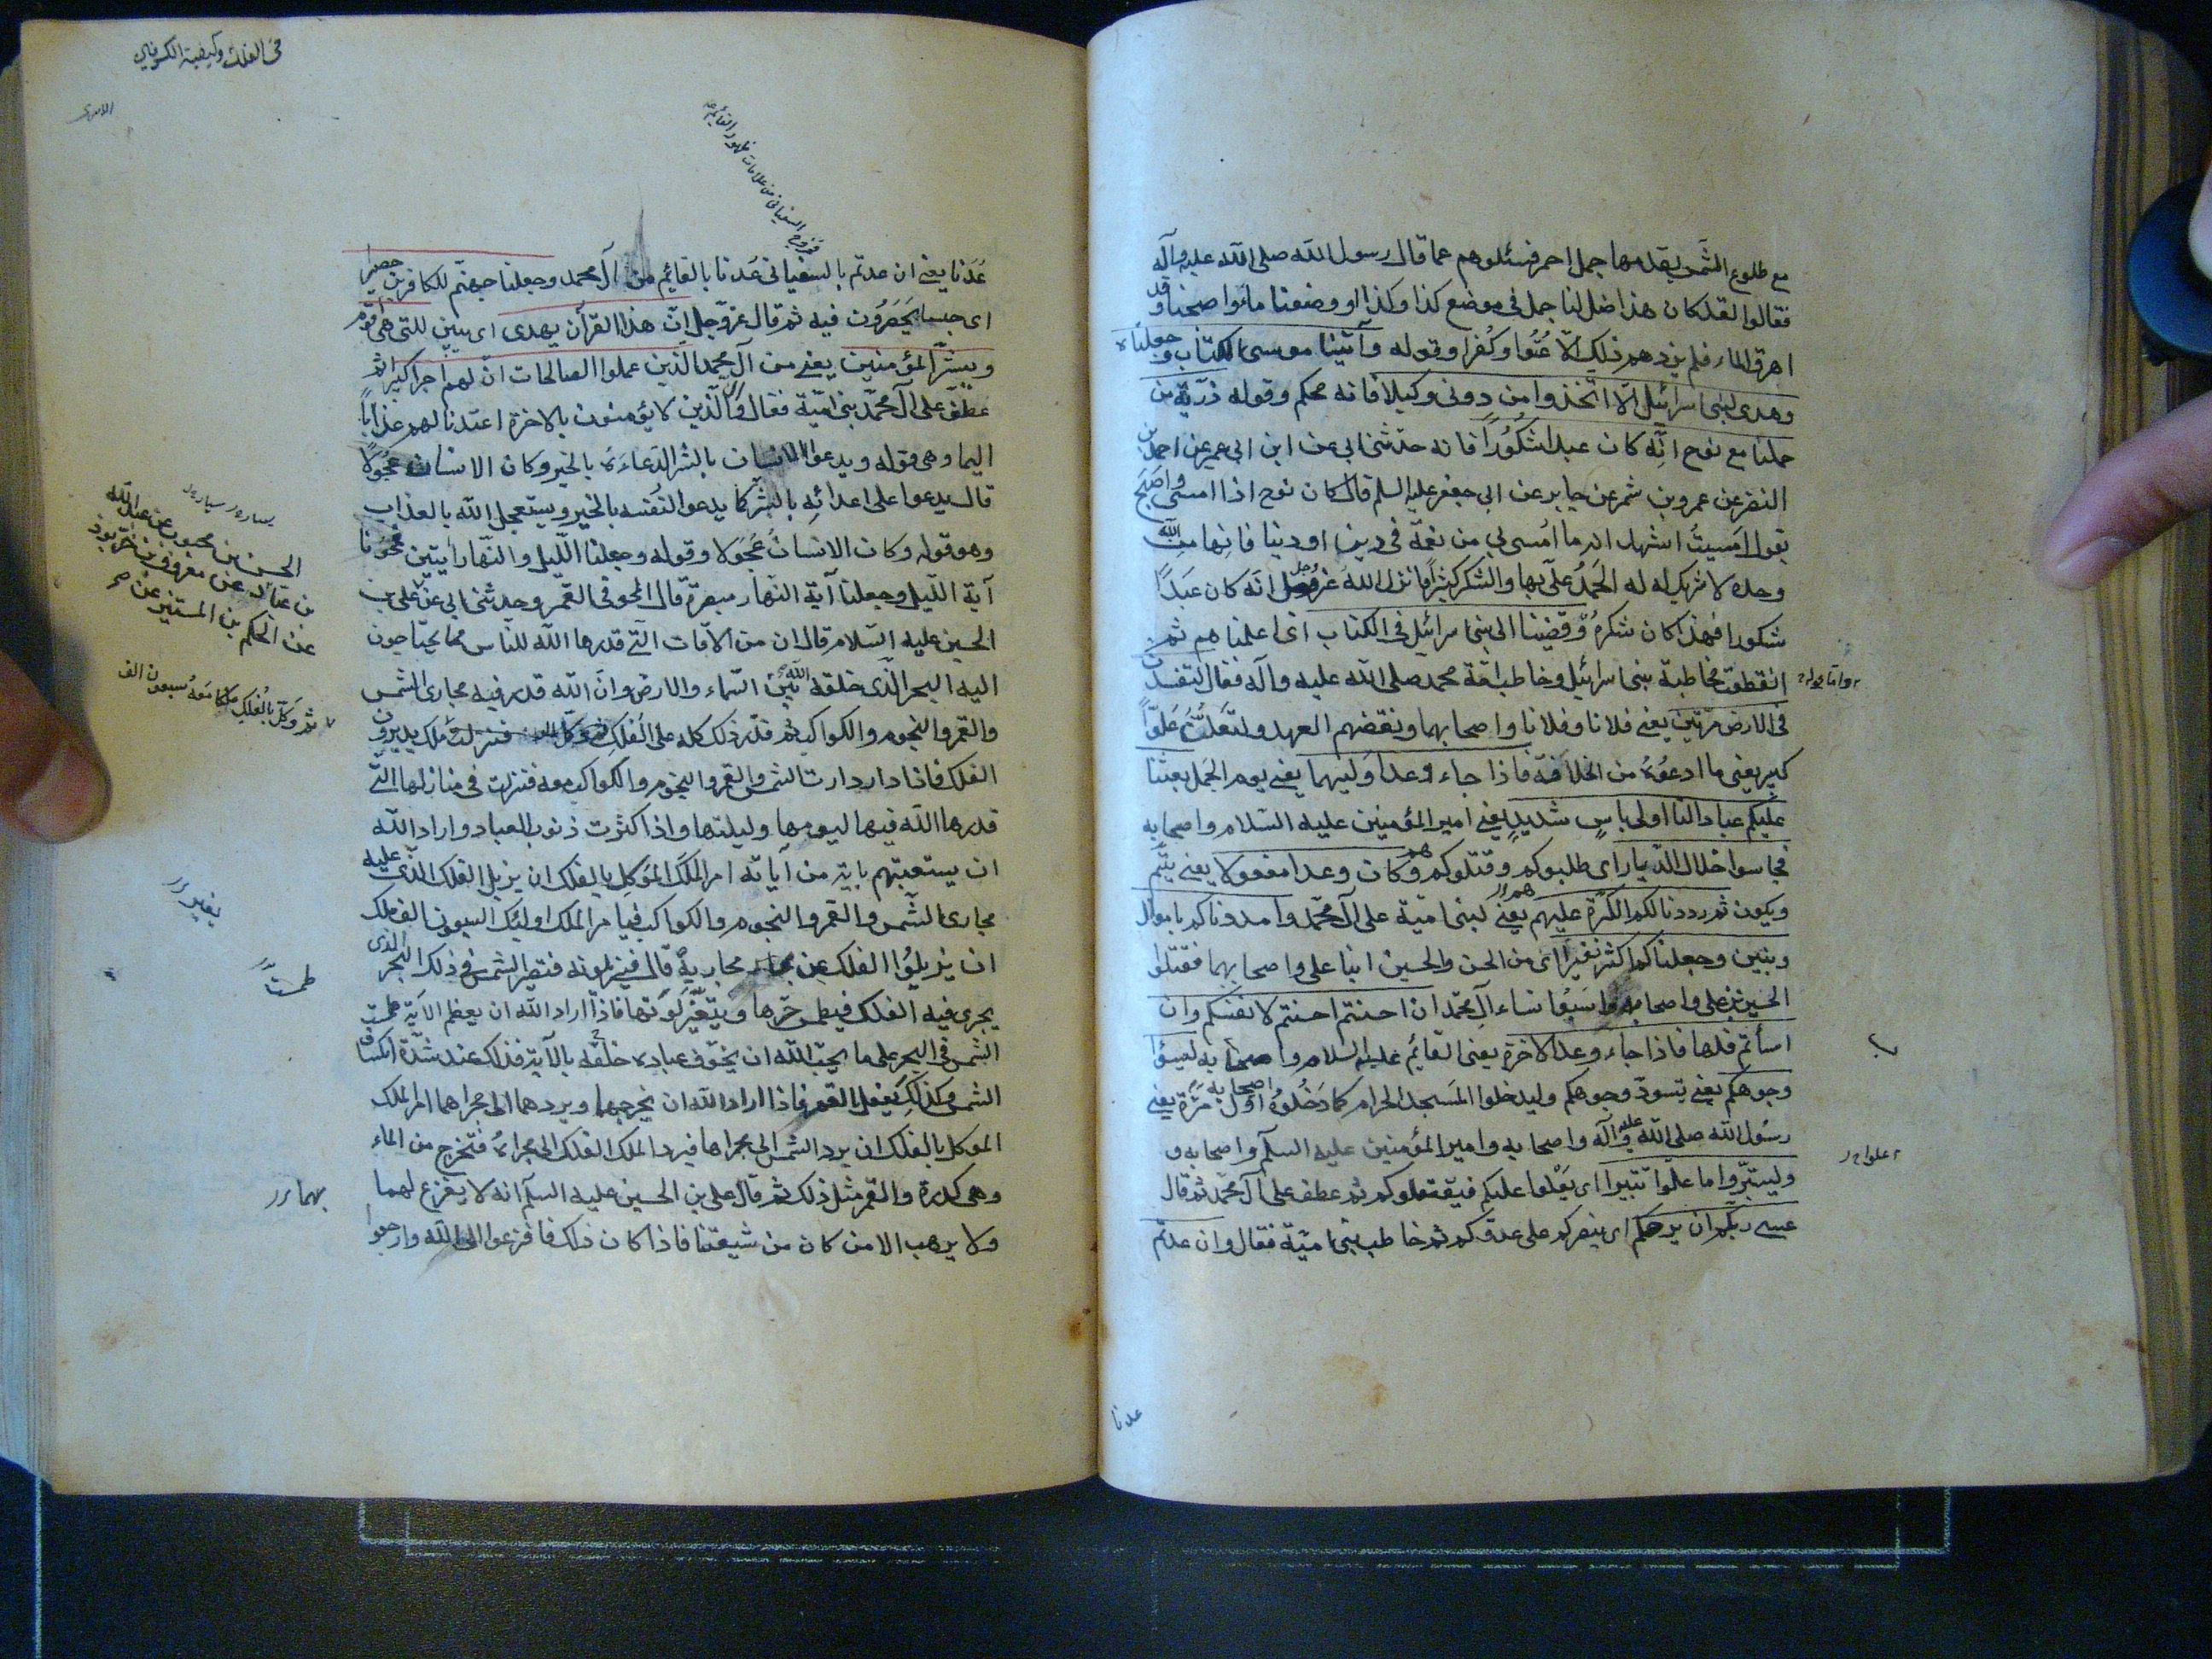 مع طلوع الشمس يقدمها جمل احمر فسئلوهم عما قال رسول الله صلى الله عليه وآله
فقالوا لقد كان هذا ضل لنا جمل في موضع كذا وكذا او وضعنا ماءً واصبحنا وقد
اهرق الماء فلم يزدهم ذلك الّا عُتُوا وكُفرا وقوله وآتينا موسى الكتاب وجعلناه
وهدى لبنى اسرائيل الّا اتّخذوا من دونى وكيلا فانه محكم وقوله ذرّية من
حملنا مع نوح انّه كان عبدا شكُورًا فانه حدّثنى ابى عن ابن ابى عمير عن احمد بن
النضر عن عمرو بن شمر عن جابر عن ابى جعفر عليه السلم قال كان نوح اذا امسى واصبح
يقول امسيتُ اشهد انه ما امسى بى من نعمة في دين او دنيا فانها من الله
وحده لا شريك له له الحمدُ علىّ بها والشكر كثيرًا فانزل اللهُ عزوجل انّه كان عبدًا
شكورا فهذا كان شكرهُ وقضينا الى بنى اسرائيل في الكتاب اى اعلمناهم ثم
انقطعت مخاطبة بنى اسرائيل وخاطب امّة محمد صلى الله عليه وآله فقال لتفسدنّ
في الارض مرّتين يعنى فلانا وفلانا واصحابهما ونقضهم العهد ولتعلُنَّ علوّاً
كبير يعنى ما ادعوُهُ من الخلافة فاذا جاء وعد اوليهما يعنى يوم الجمل بعثنا
عليكم عبادا لنا اولى باسٍ شديدٍ يعنى امير المؤمنين عليه السّلام واصحابه
فجاسوا خلال الدّيار اى طلبوكم وقتلوكم وكان وعدا مفعولا يعنى يتمّ
ويكون ثم رددنا لكم الكرّة عليهم يعنى لبنى اميّة على آل محمّد وامددناكم باموال
وبنين وجعلناكم اكثر نفيرًا اى من الحسن والحسين ابنا على واصحابهما فقتلوا
الحسين بن على واصحابه وسَبُوا نساء آل محمّد ان احسنتم احسنتم لانفسكم وان
اسأتم فلها فاذا جاء وعد الاخرة يعنى القائم عليه السلام واصحابه ليسؤا
وجوهكم يعنى تسودّ وجوهكم وليدخلوا المَسجد الحرام كما دَخلُوهُ اوّل مرّة يعنى
رسُول الله صلى الله عليه وآله واصحابه وامير المؤمنين عليه السلم واصحابه و
وليتبرّوا ما علوا تتبيرا اى يَعْلوا عليكم فيقتلوكم ثم عطف على آل محمّد ثم قال
عسى ربّكم ان يرحمكم اى ينصركم على عدوّكم ثم خاطب بنى اميّة فقال وان عدتم
عدنا
في الفلك وكيفية الكسوف
خروج السفيانى من علامات ظهور القائم
عُدنا يعنى ان عدتم بالسفيانى عَدنا بالقايم من آل محمد وجعلنا جهنّم للكافرين حصيرا
اى حبسا يُحصَرُون فيه ثم قال عزّوجل انّ هذا القرآن يهدى اى يبيّن للتى هى اقوم
ويبشّر المؤمنين يعنى من آل محمد الّذين عملوا الصالحات انّ لهم اجرا كبيرا ثم
عطف على آل محمّد بنى اميّة فقال وانّ الّذين لا يؤمنون بالاخرة اعتدنا لهم عذابًا
اليما وهى قوله ويدعوا الانسان بالشر الدعاءَهُ بالخير وكان الانسان عجُولًا
قال يدعوا على اعدائِه بالشر كما يدعوا لنفسه بالخير ويستعجل الله بالعذاب
وهو قوله وكان الانسانُ عجُولا وقوله وجعلنا اللّيل والنّهار آيتين فمحونا
آية اللّيل وجعلنا آية النّهار مبصرة قال المحو في القمر وحدثنى ابى عن على بن
الحسين عليه السّلام قال ان من الاوقات الّتى قدرها الله للنّاس مما يحتاجون
اليه البحر الّذى خلقه الله بين السّماء والارض وانّ الله قدر فيه مجارى الشمس
والقمر والنجوم والكواكب ثم قدّر ذلك كله على الفلك فنزلت مَلك يديرون
الفلك فاذا دار دارت الشمس والقمر والنجوم والكواكب معه فنزلت في منازلها الّتى
قدرها الله فيها ليومها وليلتها واذا كثرت ذنوب العباد واراد الله
ان يستعتبهم باية من آياته امر الملك المؤكل بالفلك ان يزيل الفلك الذى عليه
مجارى الشّمس والقمر والنجوم والكواكب فيامر الملك اولئك السبعون الف ملك
ان يزيلُوا الفلك عن مجاريهُ قال فيزيلونه فتصير الشمس في ذلك البحر الذى
يجرى فيه الفلك فيطمس حَرّها ويتغيّر لَونَها فاذا اراد الله ان يعظم الآية طمست
الشمس في البحر على ما يحبّ الله ان يخوّف عباده خلقه بالآية فذلك عند شدّة انكساف
الشمس وكذلك يفعل بالقمر فاذا اراد الله ان يخرجهما ويردهما الى مجراهما امر الملك
الموكل بالفلك ان يرد الشمس الى مجراها فيرد الملك الفلك الى مجراهُ فتخرج من الماء
وهى كدرة والقمر مثل ذلك ثم قال على بن الحسين عليه السلم انه لا يفزع لهما
ولا يرهب الا من كان من شيعتنا فاذا كان ذلك فافزعوا الى الله وارجعوا
الحسن بن محبوب عن عبدالله
بن سيار عن معروف بن خربوذ
عن الحكم بن المستنير عن
ثم وكّل بالفلك ملكا معهُ سبعون الف
طمست
بهما